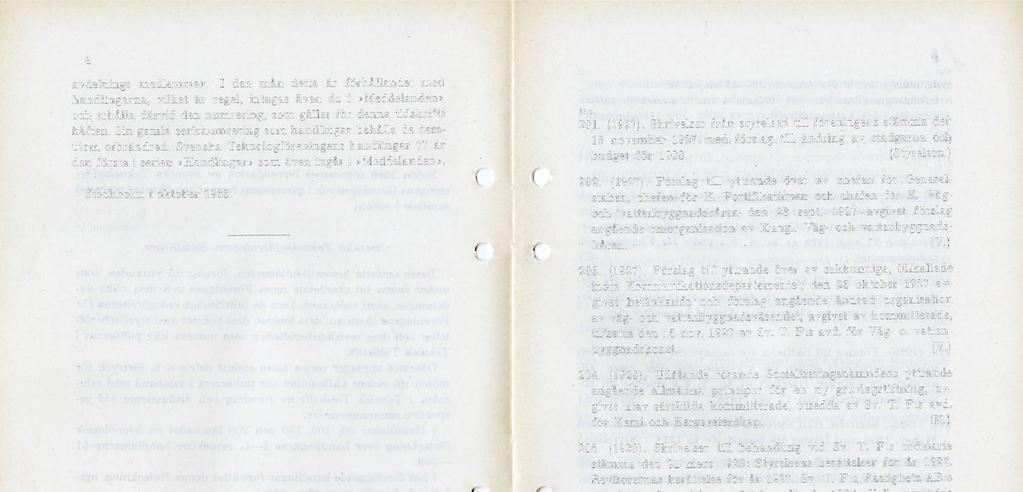 4
avdelnings medlemmar. I den mån detta är förhållandet med
handlingarna, vilket är regel, intagas även de i »Meddelanden»
och erhålla därvid den numrering, som gäller för denna tidskrifts
häften. Sin gamla serienumrering som handlingar behålla de dess-
utom oförändrad. Svenska Teknologföreningens handlingar 77 är
den första i serien »Handlingar» som även ingår i »Meddelanden».
Stockholm i oktober 1958.
N:o
201. (1927). Skrivelser från styrelsen till föreningens stämma den
18 november 1927 med förslag till ändring av stadgarna och
budget för 1928. (Styrelsen.)
202. (1927). Förslag till yttrande över av chefen för General-
staben, chefen för K. Fortifikationen och chefen för K. Väg-
och vattenbyggnadskåren den 28 sept. 1927 avgivet förslag
angående omorganisation av Kungl. Väg- och vattenbyggnads-
kåren. (V.)
203. (1927). Förslag till yttrande över av sakkunniga, tillkallade
inom Kommunikationsdepartementet, den 28 oktober 1927 av-
givet betänkande och förslag angående ändrad organisation
av väg- och vattenbyggnadsväsendet, avgivet av kommitterade,
tillsatta den 15 nov. 1927 av Sv. T. F:s avd. för Väg- o. vatten-
byggnadskonst. (V.)
204. (1928). Utlåtande rörande Socialiseringsnämndens yttrande
angående allmänna principer för en ny gruvlagstiftning, av-
givet av särskilda kommitterade, utsedda av Sv. T. F:s avd.
för Kemi och Bergsvetenskap. (K.)
205. (1928). Skrivelser till behandling vid Sv. T. F:s ordinarie
stämma den 21 mars 1928: Styrelsens berättelser för år 1927.
Revisorernas berättelse för år 1927. Sv. T. F:s Fastighets A.B:s